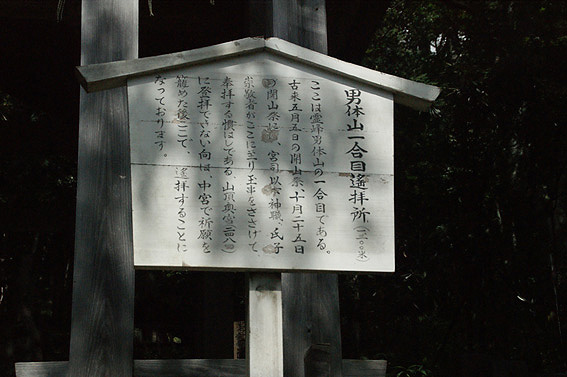 男体山一合目遙拝所(一三〇〇米)
ここは霊峰男体山の一合目である。
古来五月五日の開山祭、十月二十五日
の閉山祭に、宮司以下神職、氏子
崇敬者がここに至り玉串をささげて
奉拝する慣しである。山頂奥宮(二四八四)
に登拝できない向は、中宮で祈願を
籠めた後ここで、遙拝することに
なっております。